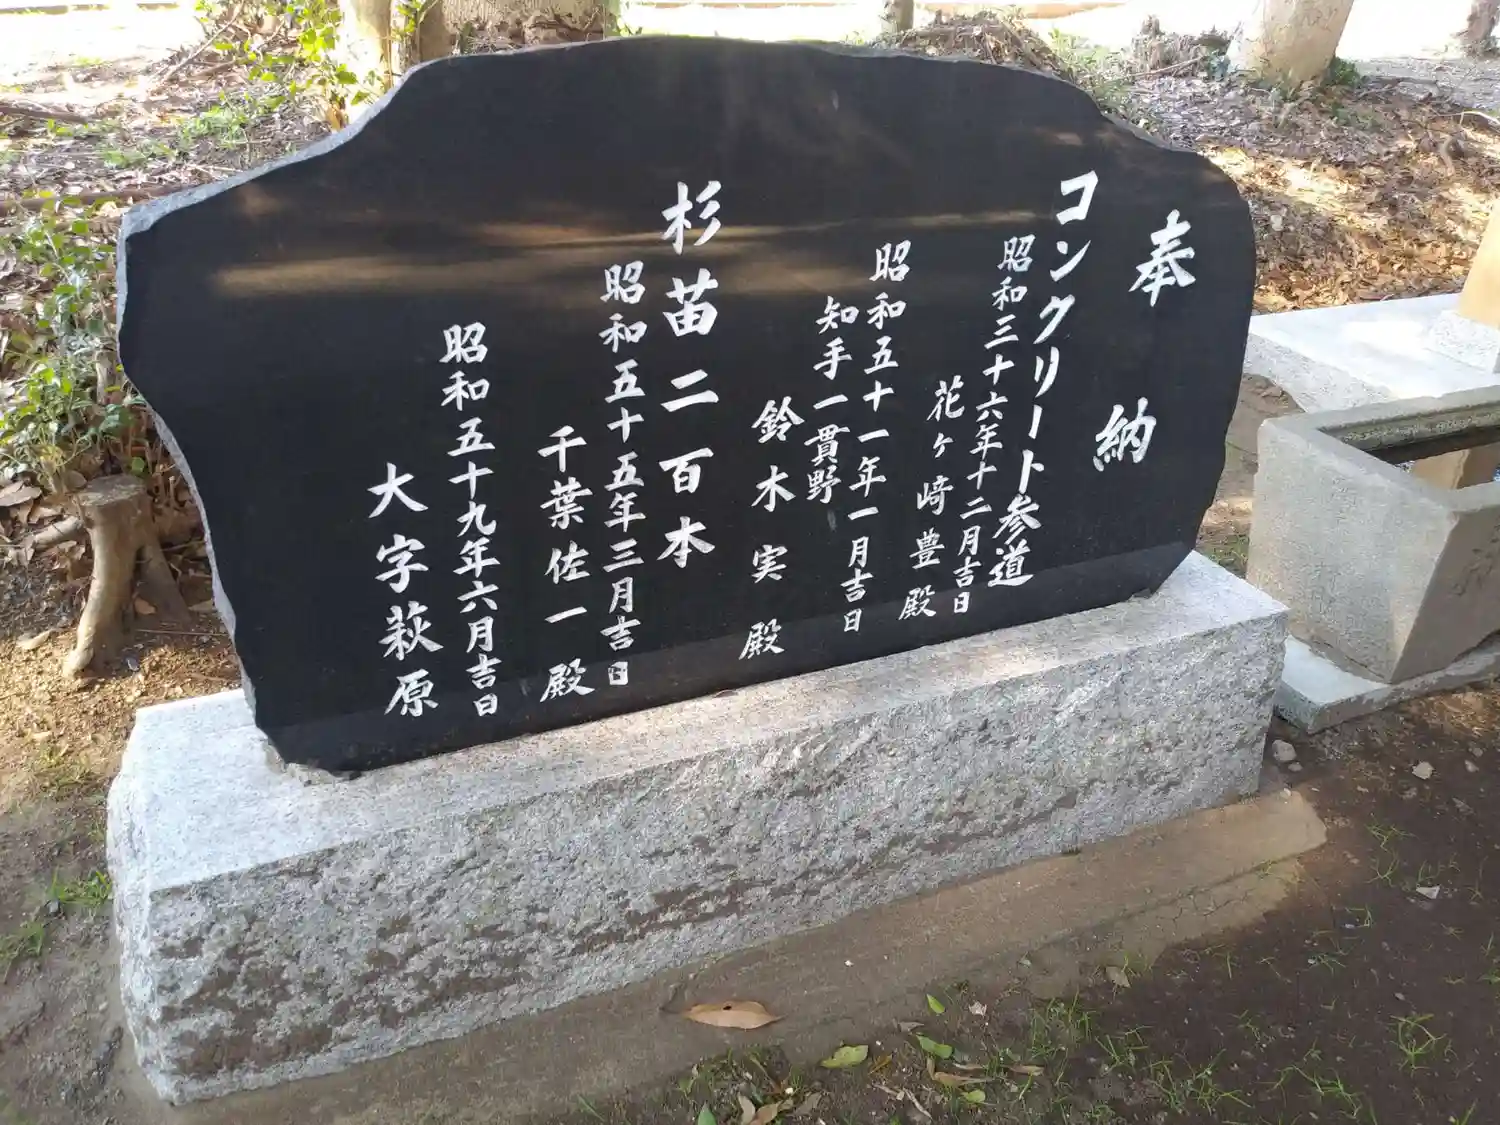 奉納
コンクリート参道
昭和三十六年十二月吉日
花ヶ﨑豊殿
昭和五十一年一月吉日
知手一貫野
鈴木実殿
杉苗二百本
昭和五十五年三月吉日
千葉佐一殿
昭和五十九年六月吉日
大字萩原